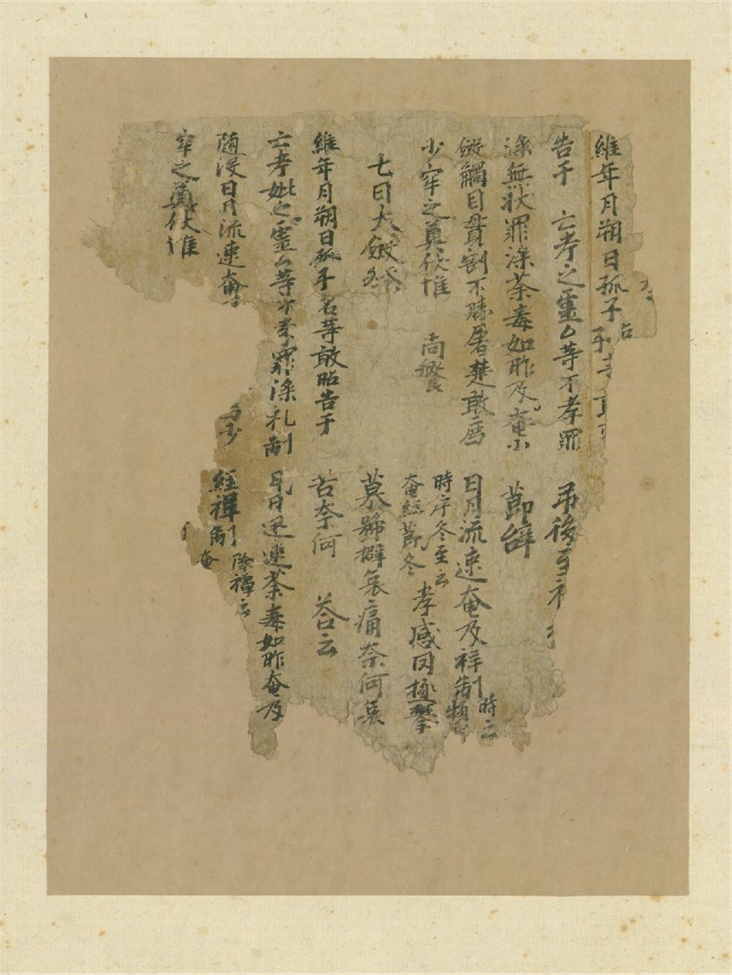 維年月朔日孤子
告于 亡考之靈厶等不孝罪
深無狀罪深荼毒如昨及奄小
斂觸目貫割不勝屠楚敢薦
少牢之奠伏惟 尚饗
七日大斂祭
維年月朔日孤子名等敢昭告于
亡考妣之靈厶等不孝罪深礼制
随没日月流速奄
少
牢之奠伏惟
吊後至
節辭
日月流速奄及祥制 時云
時序冬至云
奄經節冬
孝感罔極攀
慕號擗哀痛奈何哀
苦奈何 答云
日月迅速荼毒如昨奄及
經禫制 除禫云
奄